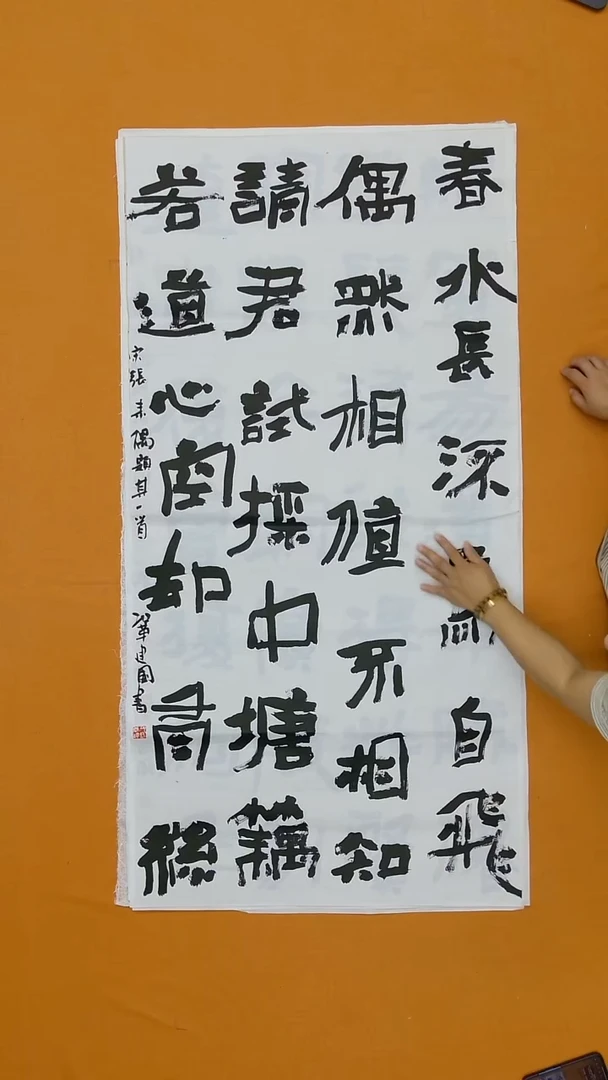 春水長流自飛
偶然相值不相知
請君試採中塘藕
若道心空却有絲
宋張耒偶題其一首 鞏建国書